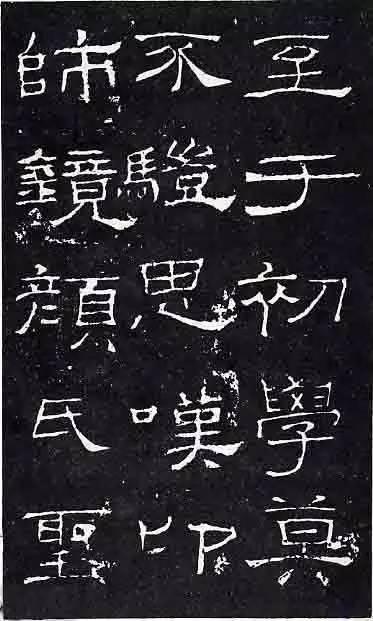 至于初學莫
不驥思嘆卬
師鏡顏氏聖